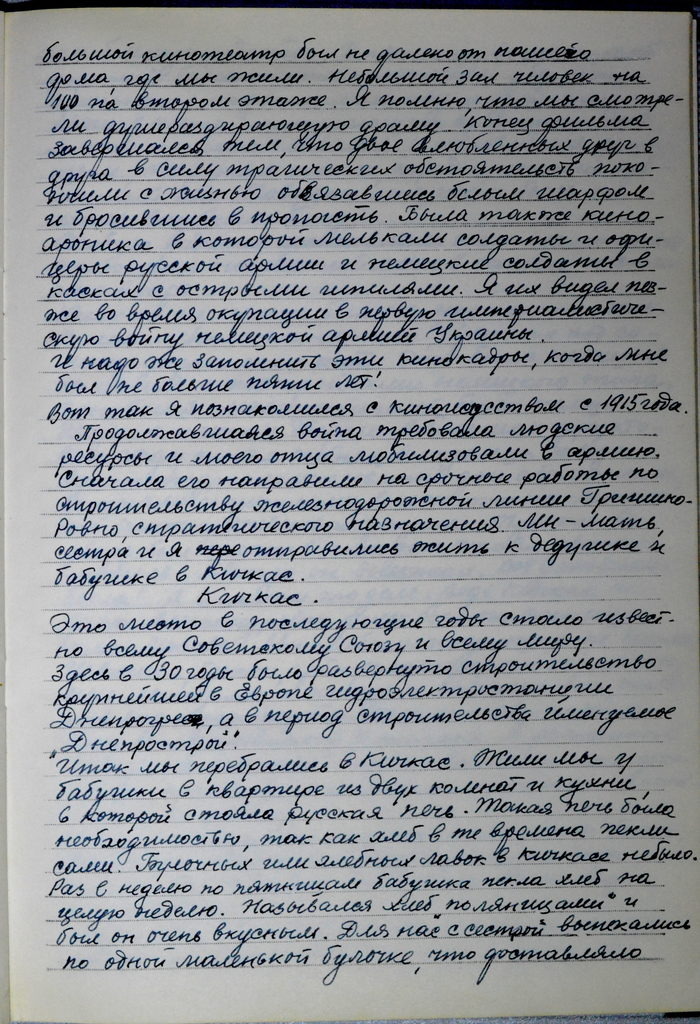 большой кинотеатр был не далеко от нашего
дома, где мы жили. Небольшой зал человек на
100 на втором этаже. Я помню, что мы смотре-
ли душераздирающую драму. Конец фильма
завершался тем, что двое влюбленных друг в
друга в силу трагических обстоятельств поко-
нчили с жизнью обвязавшись белым шарфом
и бросившись в пропасть. Была также кино-
хроника в которой мелькали солдаты и офи-
церы русской армии и немецкие солдаты в
касках с острыми шпилями. Я их видел поз-
же во время окупации в первую империалистиче-
скую войну немецкой армией Украины.
И надо же запомнить эти кинокадры, когда мне
был не больше пяти лет!
Вот так я познакомился с киноискусством с 1915 года.
Продолжавшаяся война требовала людские
ресурсы и моего отца мобилизовали в армию.
Сначала его направили на срочные работы по
строительству железнодорожной линии Гришино-
Ровно, стратегического назначения. Мы - мать,
сестра и я отправились жить к дедушке и
бабушке в Кичкас.
Кичкас.
Это место в последующие годы стало извест-
но всему Советскому Союзу и всему миру.
Здесь в 30 годы было развернуто строительство
крупнейшей в Европе гидроэлектростанции
Днепрогрес, а в период строительства именуемое
„Днепрострой".
Итак мы перебрались в Кичкас. Жили мы у
бабушки в квартире из двух комнат и кухни,
в которой стояла русская печь. Такая печь была
необходимостью, так как хлеб в те времена пекли
сами. Булочных или хлебных лавок в Кичкасе небыло.
Раз в неделю по пятницам бабушка пекла хлеб на
целую неделю. Назывался хлеб „поляницами" и
был он очень вкусным. Для нас с сестрой выпекались
по одной маленькой булочке, что доставляло